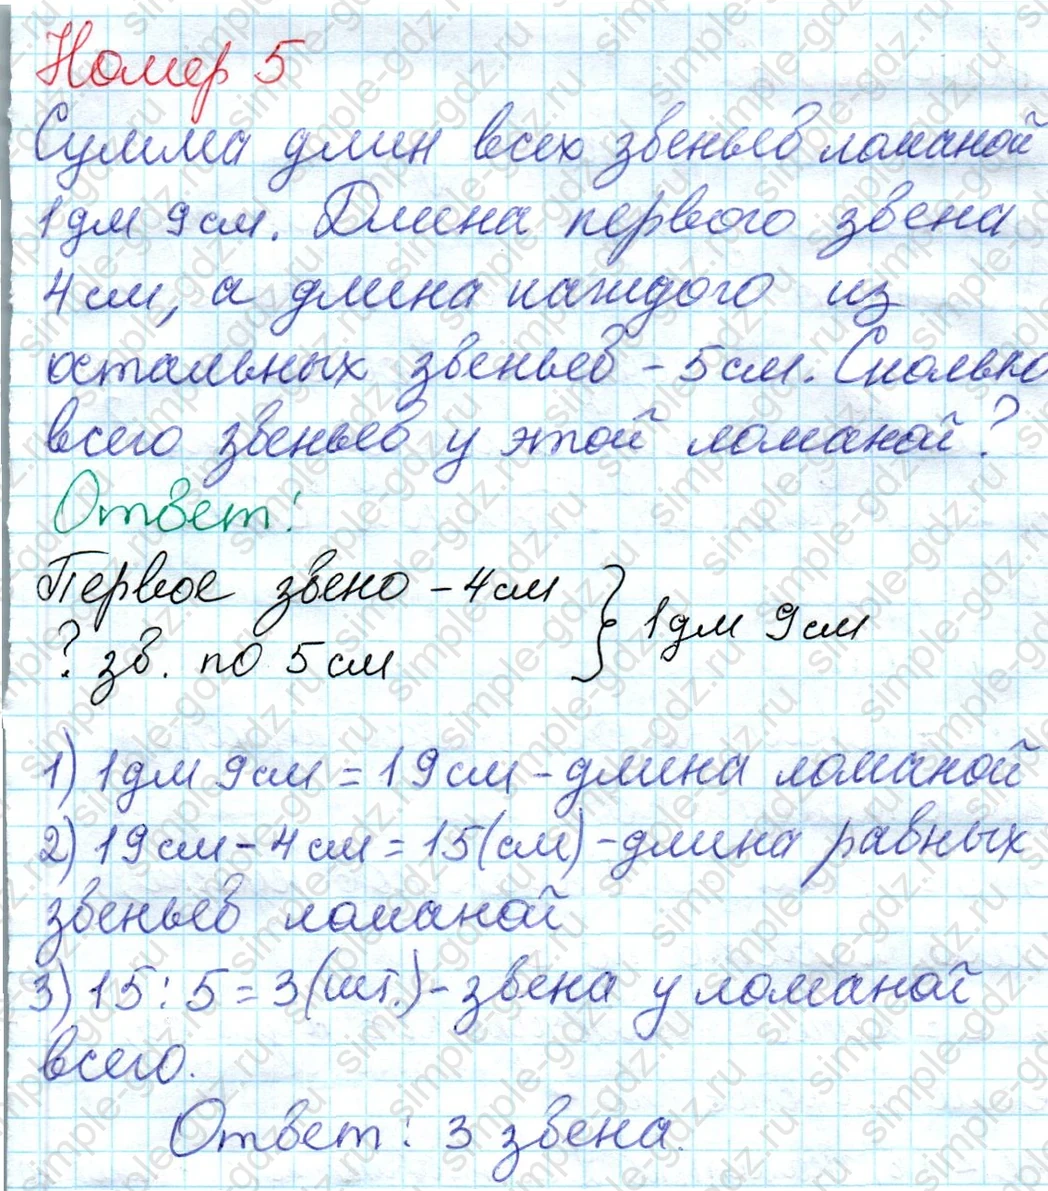 Номер 5
Сумма длин всех звеньев ломаной
1дм 9см. Длина первого звена
4см, а длина каждого из
остальных звеньев - 5см. Сколько
всего звеньев у этой ломаной?
Ответ:
Первое звено - 4см
? зв. по 5см
} 1дм 9см
1) 1дм 9см = 19см - длина ломаной
2) 19см - 4см = 15(см) - длина равных
звеньев ломаной
3) 15 : 5 = 3(шт.) - звена у ломаной
всего.
Ответ: 3 звена.
simple-gdz.ru